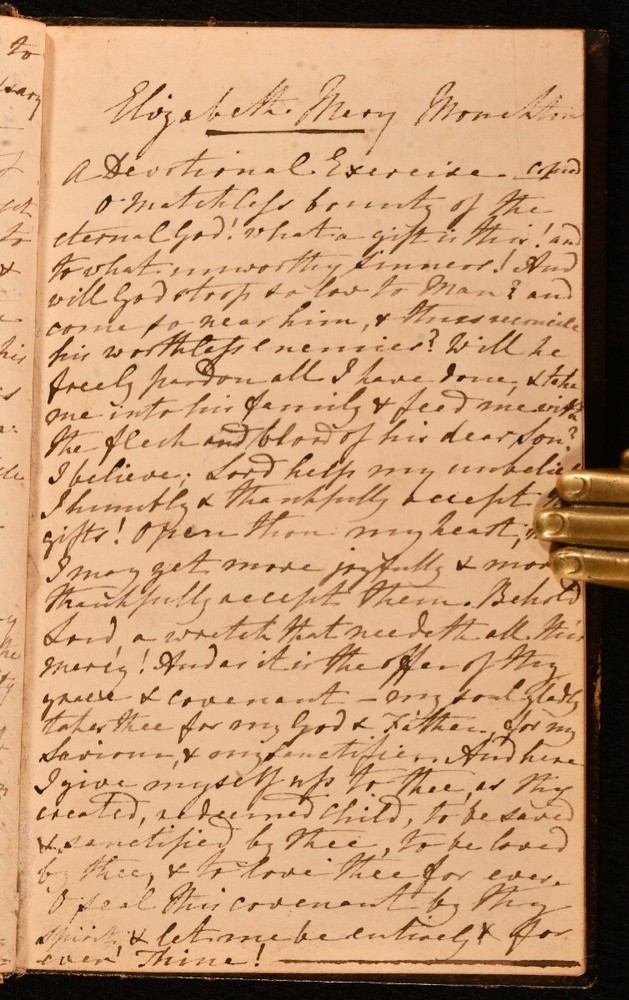 to
Elizabeth Mary Monckton
A Devotional Exercise - copied
O matchless bounty of the
eternal God! what a gift is this! and
to what unworthy sinners! And
will God stoop so low to Man? and
come so near him, & thus reconcile
his worthless enemies? Will he
freely pardon all I have done, & take
me into his family & feed me with
the flesh and blood of his dear Son?
I believe; Lord help my unbelief
I humbly & thankfully accept
gifts! Open thou my heart,
I may yet more joyfully & more
thankfully accept them. Behold
Lord a wretch that needeth all this
mercy! And as it is the offer of thy
grace & covenant - my soul gladly
takes thee for my God & Father, for my
Saviour, & my sanctifier. And here
I give myself up to thee, as thy
created, redeemed child, to be saved
& sanctified by thee, to be loved
by thee, & to love thee for ever.
O seal this covenant by thy
spirit, & let me be entirely & for
ever Thine!